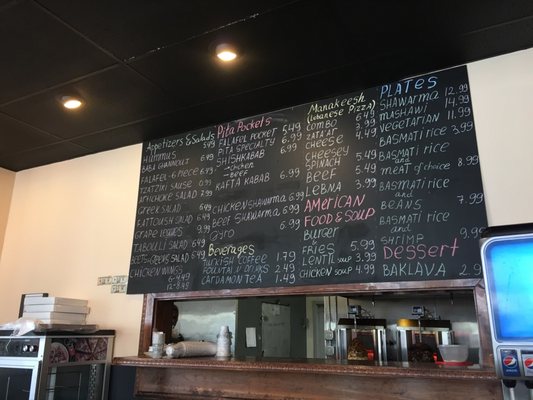 Appetizers & Salads
Hummus 5.49
Baba Ghannouj 6.49
Falafel-6 piece
Tzatziki sause 0.99
Artichoke salad
Greek salad
Fattoush salad
Grape leaves
Tabouli salad
Beets-Greens salad
Chicken wings
Pita Pockets
Falafel pocket 5.49
Spinach pocket
Shishkabab 6.99
- chicken
- beef
Kafta kabab 6.99
Chicken shawarma 6.99
Beef shawarma 6.99
Gyro
Beverages
Turkish coffee 2.49
Fountain drinks 1.79
Cardamon tea 1.49
Manakeesh
(Lebanese Pizza)
Combo 4.99
Zata'ar 3.99
Cheese 4.49
Cheesey
Spinach 5.49
Beef 5.49
Lebna 3.99
American
Food & Soup
Burger
and
Fries 5.99
Lentil soup 3.99
Chicken soup 4.99
Plates
Shawarma 12.99
Mushawi 14.99
Vegetarian 11.99
Basmati rice 3.99
Basmati rice
and
meat of choice 8.99
Basmati rice
and
Beans 7.99
Basmati rice
and
shrimp 9.99
Dessert
Baklava 2.9
pepsi